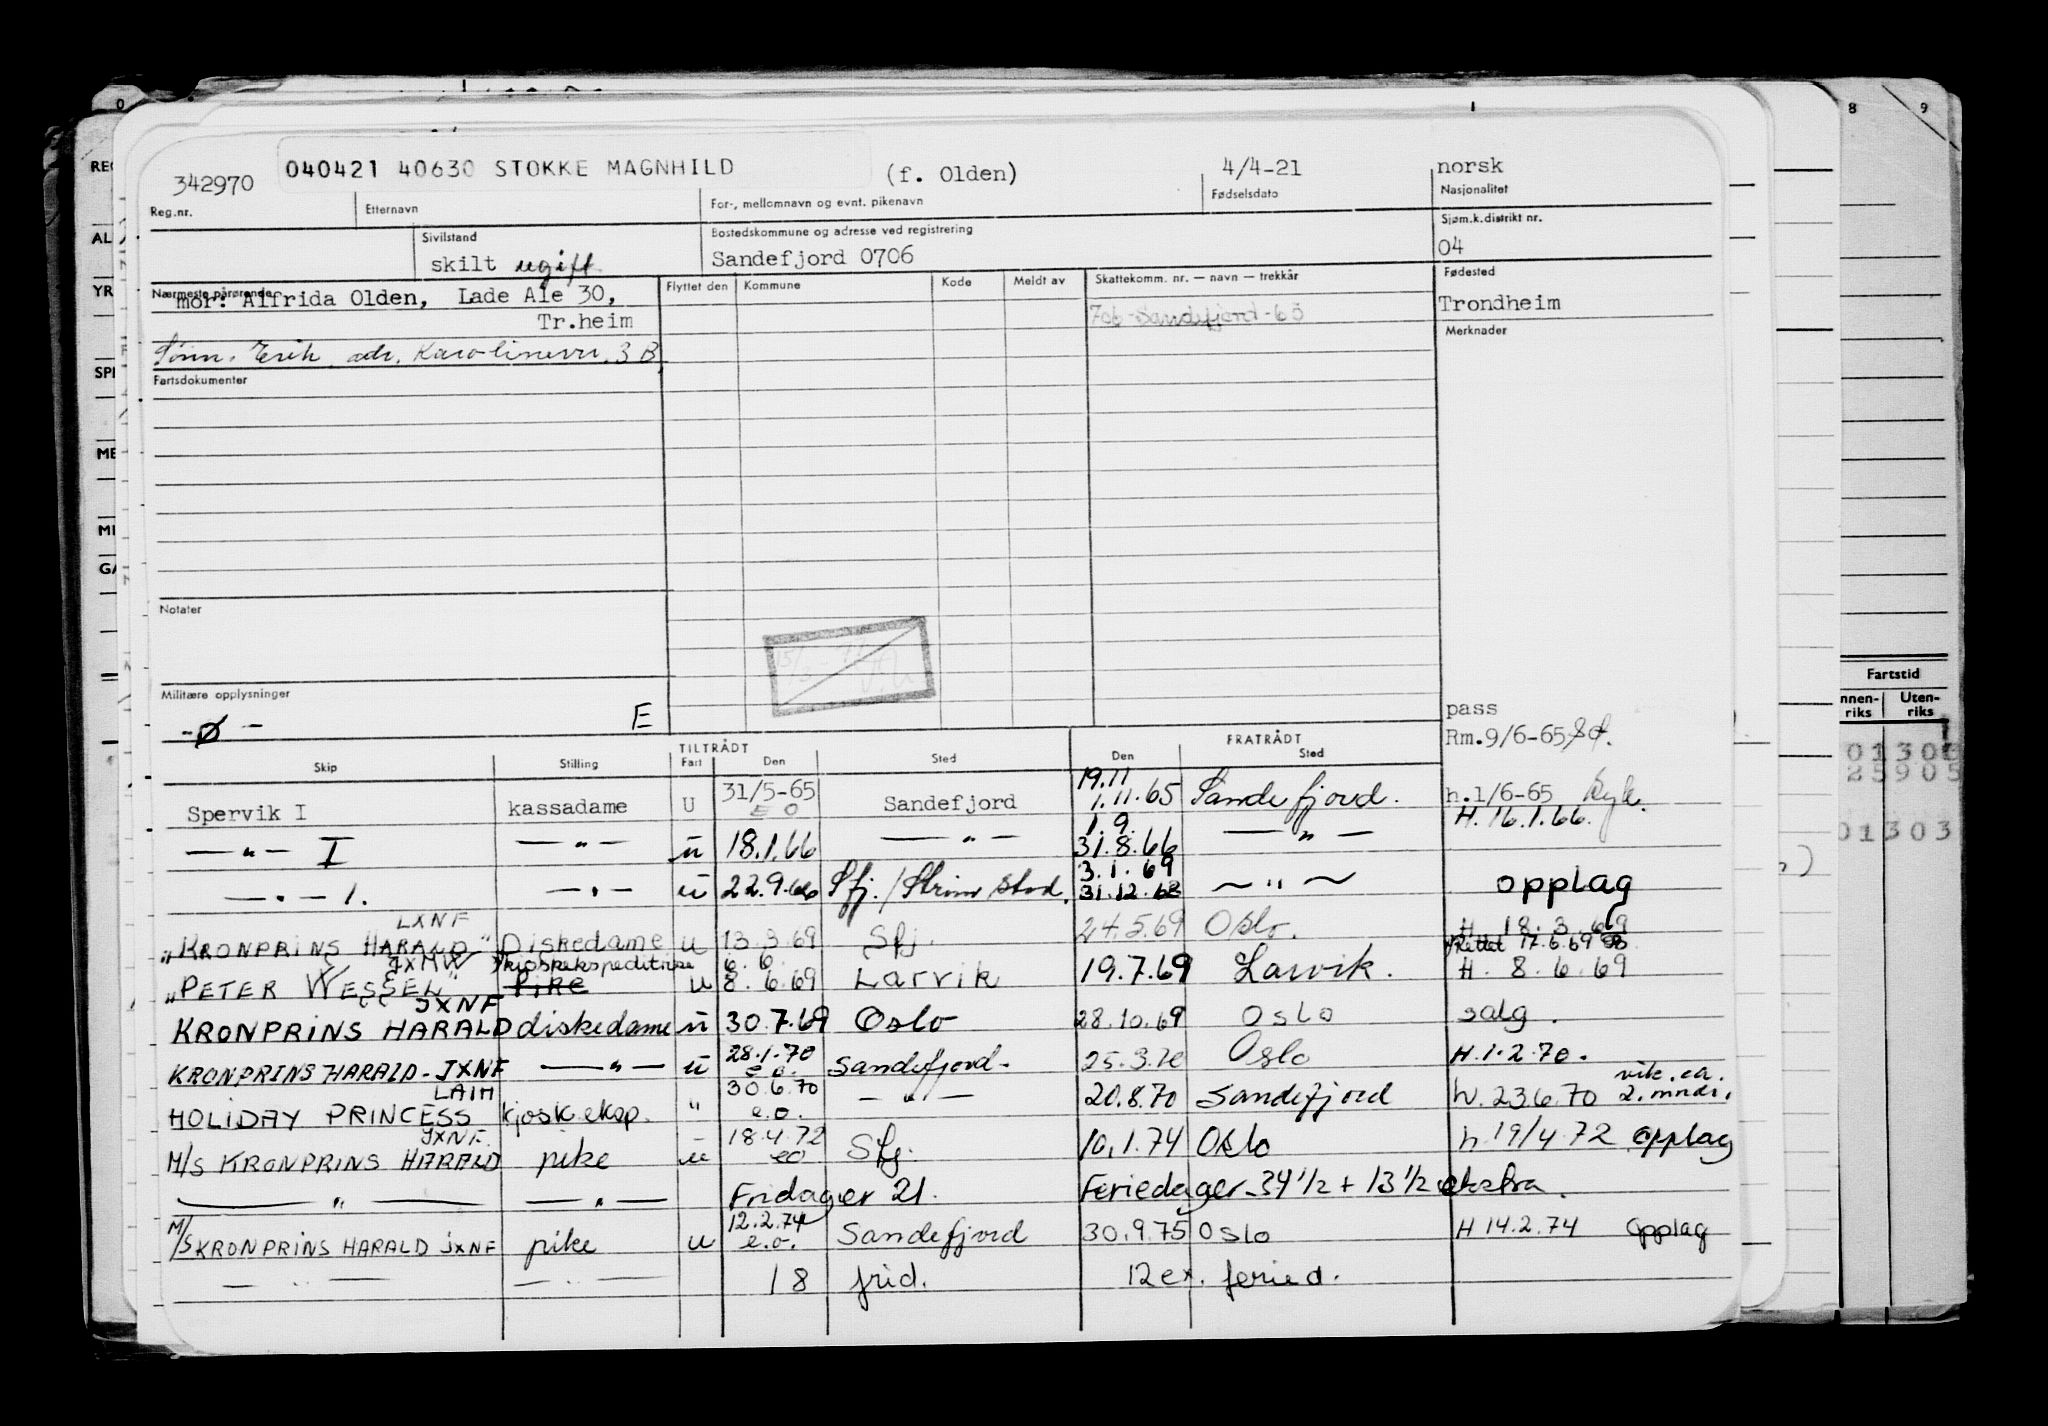 040421 40630 STOKKE MAGNHILD
342970 (f. Olden) 4/4-21 norsk
Reg.nr. Etternavn For-, mellomnavn og evnt. pikenavn Fødselsdato Nasjonalitet
Sivilstand Bostedskommune og adresse ved registrering Sjøm.k.distrikt nr.
skilt ugift Sandefjord 0706 04
Nærmeste pårørende Flyttet den Kommune Kode Meldt av Skattekomm. nr. — navn — trekkår Fødested
mor: Alfrida Olden, Lade Ale 30, 706-Sandefjord-65 Trondheim
Tr.heim Merknader
Sønn. Erik adr. Karolinervn. 3 B
Fartsdokumenter
Notater
Militære opplysninger
-Ø- E
pass
Rm.9/6-65
TILTRÅDT FRATRÅDT
Skip Stilling Fart Den Sted Den Sted
Spervik I kassadame U 31/5-65 EO Sandefjord 19.11 1.11.65 Sandefjord. h.1/6-65
H. 16.1.66.
— " — I — " — u 18.1.66 — " — 1.9. 31.8.66 — " —
— " — 1. — " — u 22.9.66 Sfj./ 3.1.69 31.12.68 ~ " ~ opplag
LXNF
"KRONPRINS HARALD" Diskedame u 13.3.69 Sfj. 24.5.69 Oslo. H 18.3.69
Rettet 17.6.69
JXMW kioskekspeditrise 6.6.
"PETER WESSEL" pike u 8.6.69 Larvik 19.7.69 Larvik. H. 8.6.69
JXNF
KRONPRINS HARALD diskedame u 30.7.69 Oslo 28.10.69 Oslo salg.
KRONPRINS HARALD-JXNF — " — u 28.1.70 e.o. Sandefjord- 25.3.70 Oslo H.1.2.70.
LAIH
HOLIDAY PRINCESS kjosk.eksp. " 30.6.70 e.o. — " — 20.8.70 Sandefjord h. 23.6.70 vik. ca. 2. mndr.
JXNF.
M/S KRONPRINS HARALD pike u 18.4.72 eo Sfj. 10.1.74 Oslo h 19/4 72 opplag
— " — — " — Fridager 21. Feriedager-34 1/2 + 13 1/2 ekstra.
M/S KRONPRINS HARALD JXNF pike u 12.2.74 e.o. Sandefjord 30.9.75 Oslo H 14.2.74 opplag
— " — — " — 18 frid. 12 ex. feried.
8 9
Fartstid
Uten-
riks riks
25905
01303